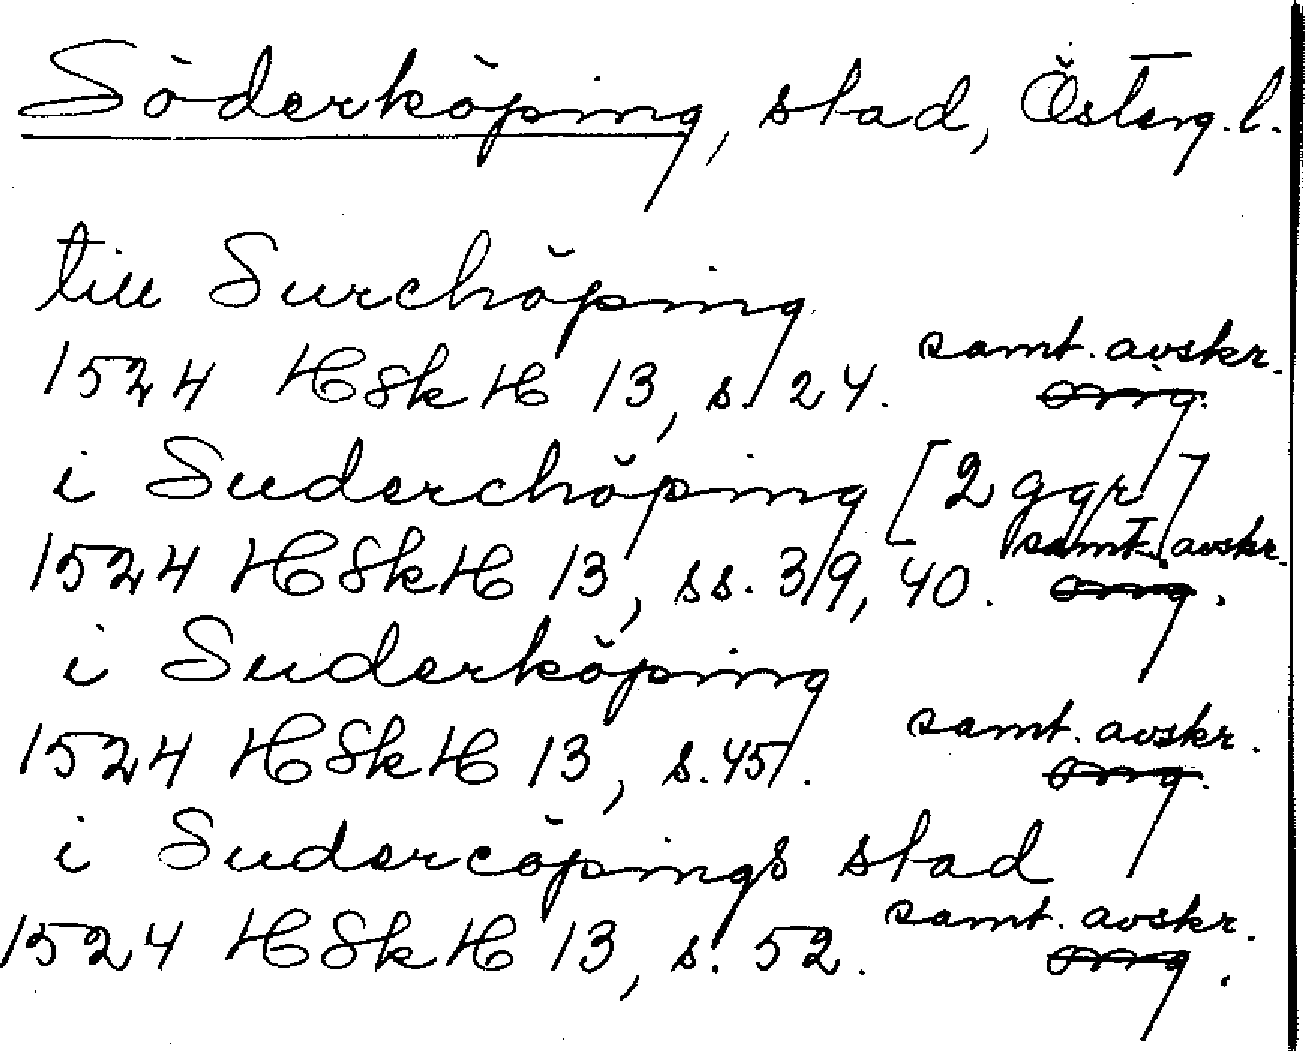 Söderköping, stad, Österg. l.
till Surchöping
1524 HSkH 13, s. 24. samt. avskr.
orig.
i Suderchöping [2 ggr]
1524 HSkH 13, ss. 39, 40. samt. avskr.
orig.
i Suderköping
1524 HSkH 13, s. 45. samt. avskr.
orig.
i Sudercöpings stad
1524 HSkH 13, s. 52. samt. avskr.
orig.